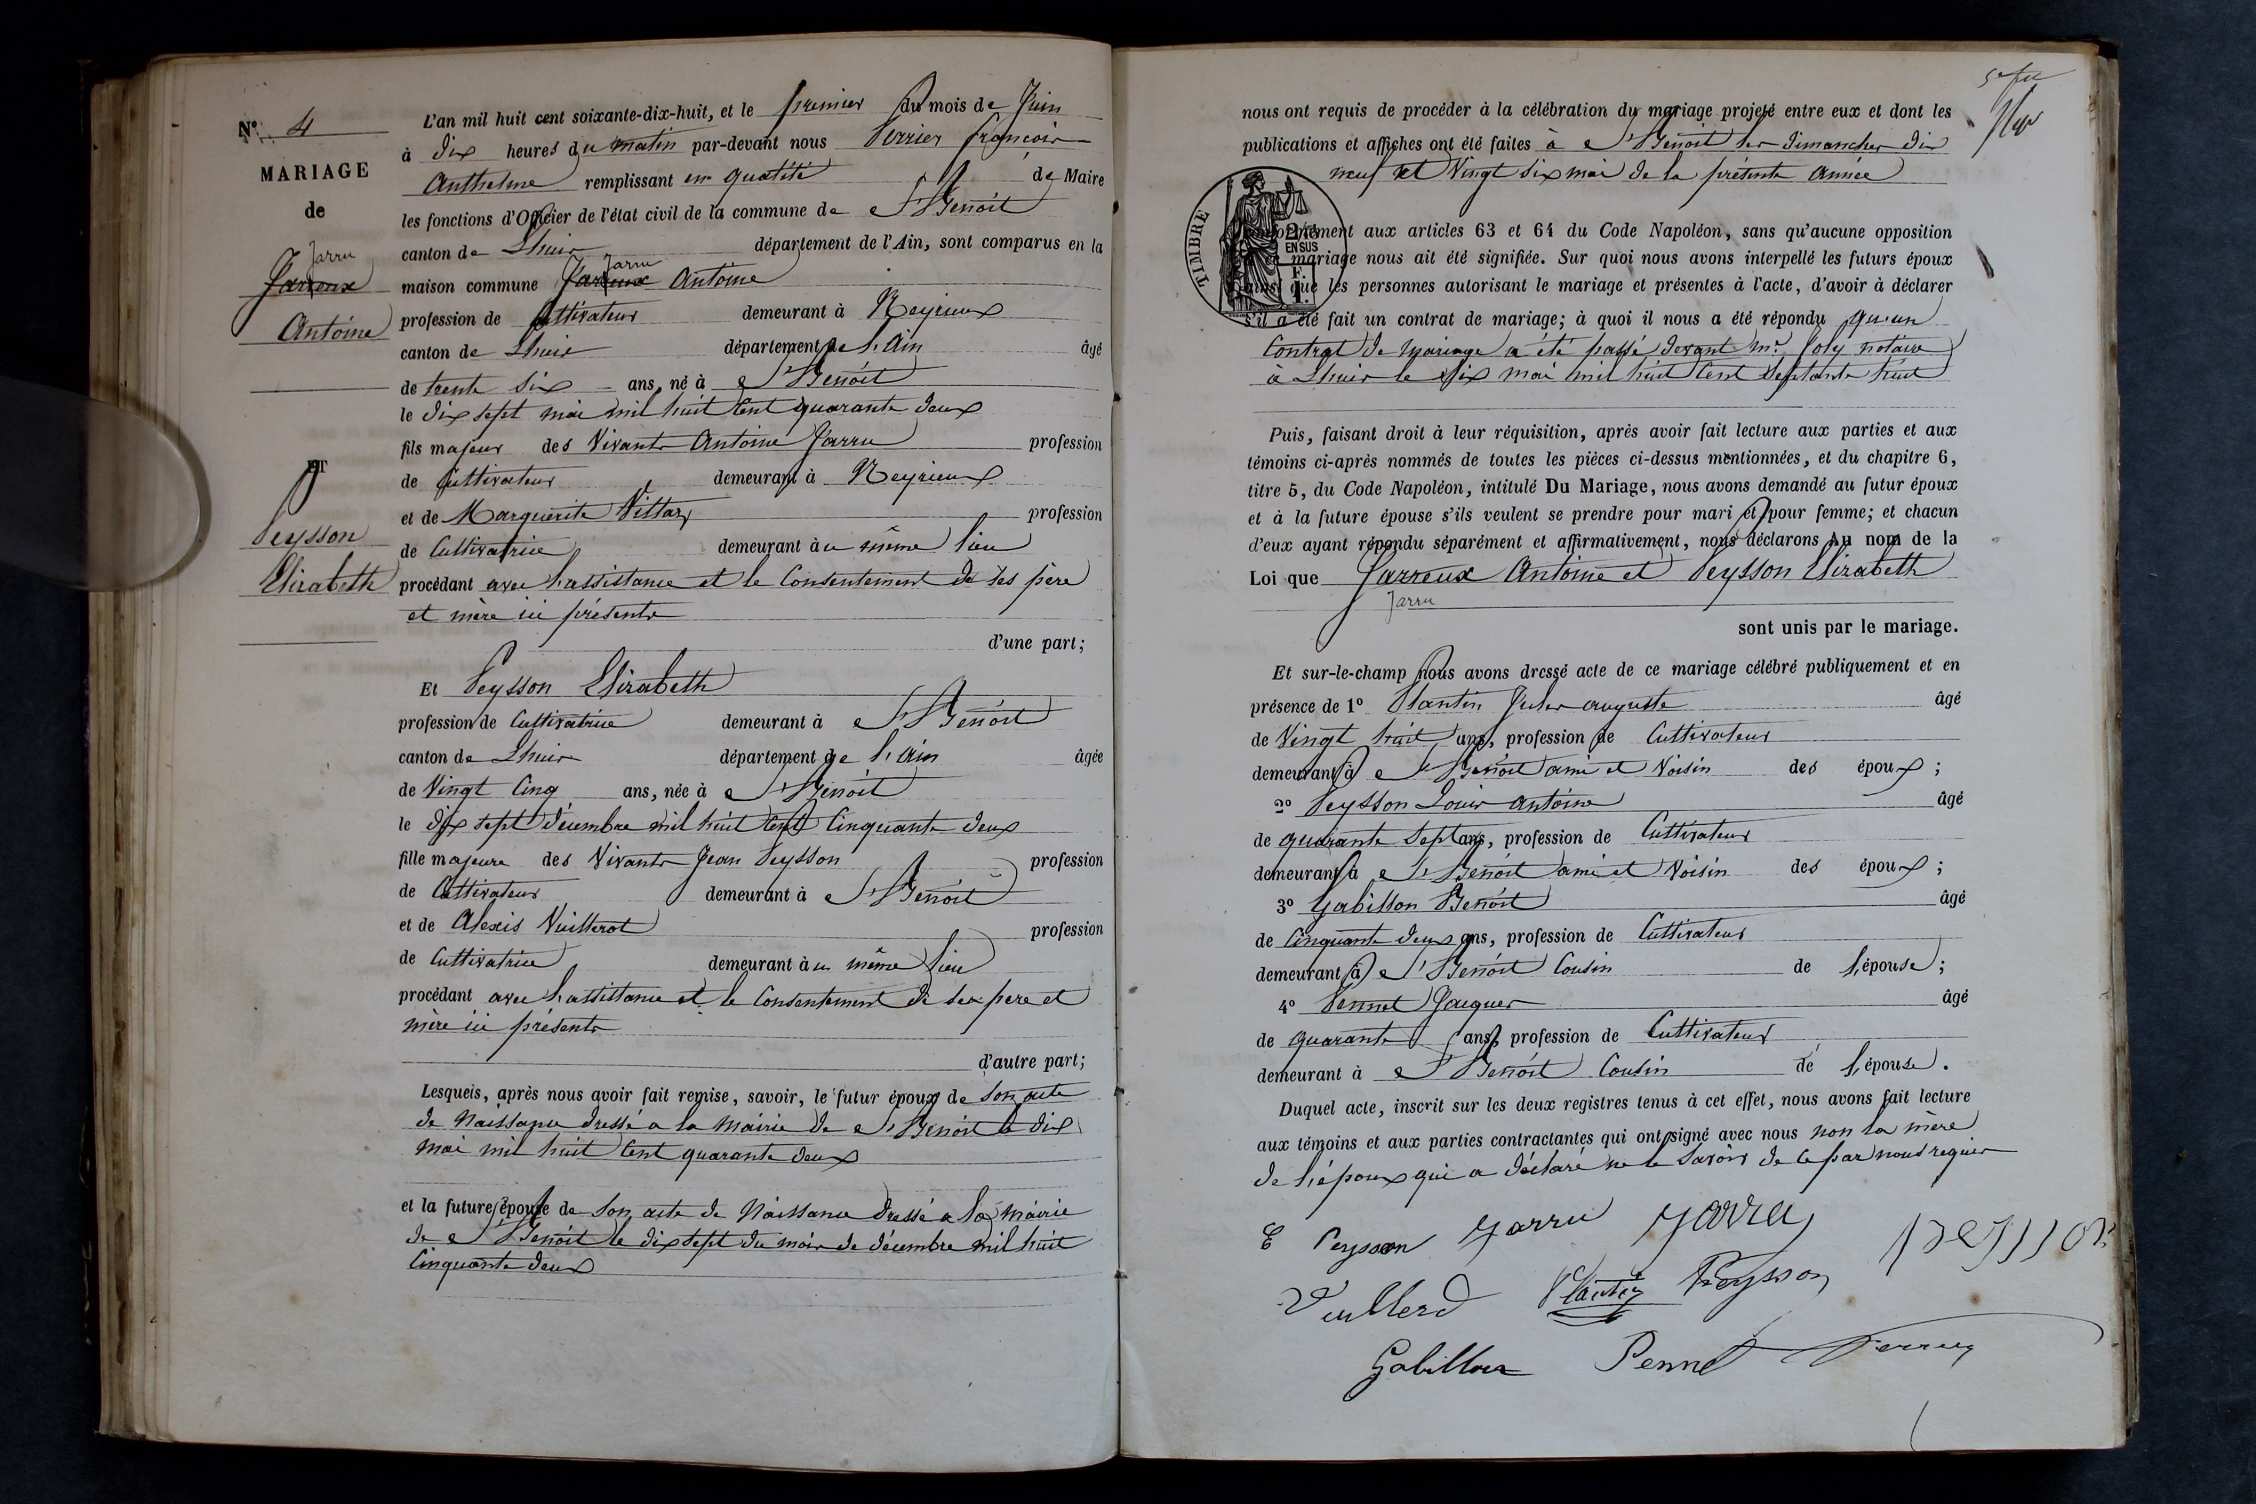 N° 4
MARIAGE
de
Jarru
Jarreux
Antoine
ET
Peysson
Elizabeth
L'an mil huit cent soixante-dix-huit, et le premier du mois de Juin
à dix heures du matin par-devant nous Perrier françois
Anthelme remplissant en qualité de Maire
les fonctions d'Officier de l'état civil de la commune de St Benoit
canton de Lhuis département de l'Ain, sont comparus en la
Jarru
maison commune Jarreux Antoine
profession de Cultivateur demeurant à Neyrieux
canton de Lhuis département de l'ain âgé
de trente six ans, né à St Benoit
le dix sept mai mil huit cent quarante deux
fils majeur des Vivants Antoine Jarru profession
de Cultivateur demeurant à Neyrieux
et de Marguerite Vittoz profession
de Cultivatrice demeurant à u même lieu
procédant avec l'assistance et le Consentement de ses père
et mère ici présents
d'une part;
Et Peysson Elizabeth
profession de Cultivatrice demeurant à St Benoit
canton de Lhuis département de l'ain âgée
de Vingt Cinq ans, née à St Benoit
le dix sept décembre mil huit Cent Cinquante deux
fille majeure des Vivants Jean Peysson profession
de Cultivateur demeurant à St Benoit
et de Alexis Vuillerot profession
de Cultivatrice demeurant à u même lieu
procédant avec l'assistance et le Consentement de ses pere et
mère ici présents
d'autre part;
Lesquels, après nous avoir fait remise, savoir, le futur époux de Son acte
de Naissance dressé a la Mairie de St Benoit le dix
mai mil huit Cent quarante deux
et la future épouse de Son acte de Naissance dressé a la Mairie
de St Benoit le dix sept du mois de décembre mil huit
Cinquante deux
nous ont requis de procéder à la célébration du mariage projeté entre eux et dont les
publications et affiches ont été faites à St Benoit les dimanches dix
neuf et Vingt Six mai de la présente Année
TIMBRE
2/10
EN SUS
F.
1.
conformément aux articles 63 et 64 du Code Napoléon, sans qu'aucune opposition
mariage nous ait été signifiée. Sur quoi nous avons interpellé les futurs époux
ainsi que les personnes autorisant le mariage et présentes à l'acte, d'avoir à déclarer
s'il a été fait un contrat de mariage; à quoi il nous a été répondu qu'un
Contrat de Mariage a été passé devant Mr Joly notaire
à Lhuis le Six mai mil huit Cent Septante huit
Puis, faisant droit à leur réquisition, après avoir fait lecture aux parties et aux
témoins ci-après nommés de toutes les pièces ci-dessus mentionnées, et du chapitre 6,
titre 5, du Code Napoléon, intitulé Du Mariage, nous avons demandé au futur époux
et à la future épouse s'ils veulent se prendre pour mari et pour femme; et chacun
d'eux ayant répondu séparément et affirmativement, nous déclarons Au nom de la
Loi que Jarreux Antoine et Peysson Elizabeth
Jarru
sont unis par le mariage.
Et sur-le-champ nous avons dressé acte de ce mariage célébré publiquement et en
présence de 1° Plantin Jules auguste âgé
de Vingt huit ans, profession de Cultivateur
demeurant à St Benoit ami et Voisin des époux;
2° Peysson Louis Antoine âgé
de quarante Sept ans, profession de Cultivateur
demeurant à St Benoit ami et Voisin des époux;
3° Gabillon Benoit âgé
de Cinquante deux ans, profession de Cultivateur
demeurant à St Benoit Cousin de l'épouse;
4° Pennet Jacques âgé
de quarante ans, profession de Cultivateur
demeurant à St Benoit Cousin de l'épouse.
Duquel acte, inscrit sur les deux registres tenus à cet effet, nous avons fait lecture
aux témoins et aux parties contractantes qui ont signé avec nous non la mère
de l'époux qui a déclaré ne le Savoir de ce par nous requis
E Peysson Jarru Jarru peysson
Vuillerd Plantin Peysson
Gabillon Pennet Perrier